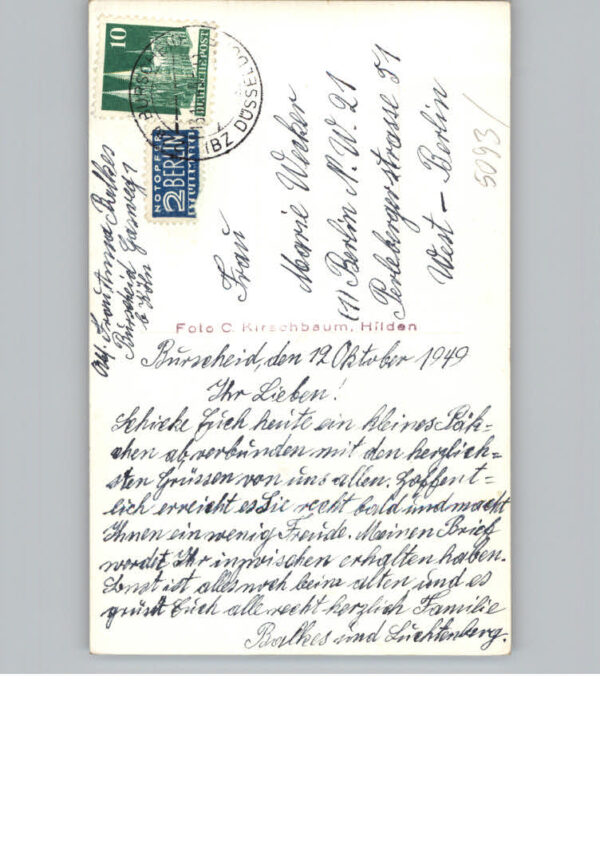 10
DEUTSCHE POST
NOTOPFER
2 BERLIN
STEUERMARKE
DÜSSELDO
5093/
Frau
Marie Wecker
(1) Berlin N.W. 21
Perlebergerstrasse 51
West - Berlin
Abs. Frau Anna Balkes
Burscheid
b Köln
Foto C. Kirschbaum, Hilden
Burscheid, den 12 Oktober 1949
Ihr Lieben!
Schicke Euch heute ein kleines Päk=
chen ab verbunden mit den herzlich=
sten Grüssen von uns allen. Hoffent=
lich erreicht es Sie recht bald und macht
Ihnen ein wenig Freude. Meinen Brief
werdet Ihr inzwischen erhalten haben.
Sonst ist alles noch beim alten und es
grüsst Euch alle recht herzlich Familie
Balkes und Luchtenberg.